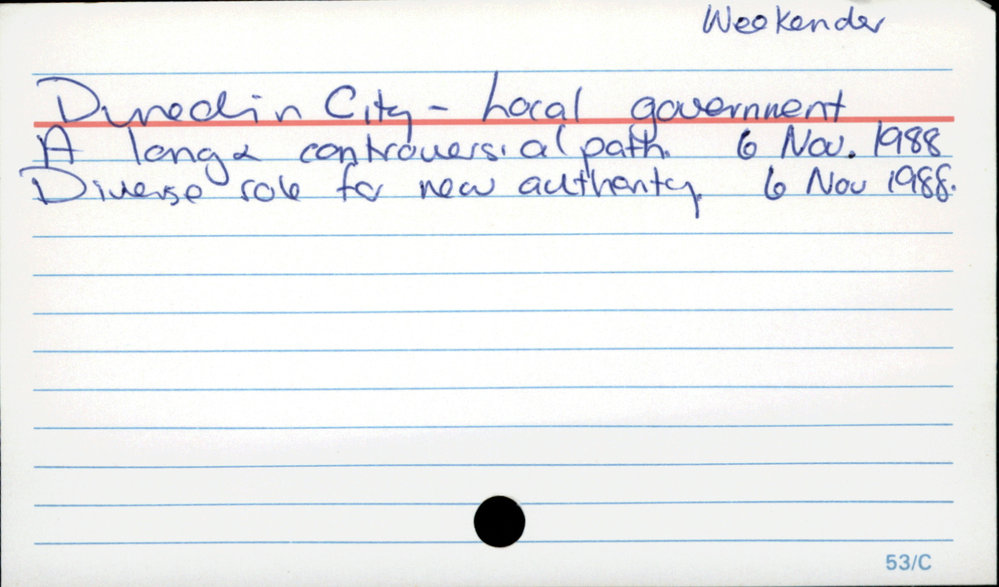 Weekender
Dunedin City - Local government
A long & controversial path. 6 Nov. 1988
Diverse role for new authority. 6 Nov 1988.
53/C